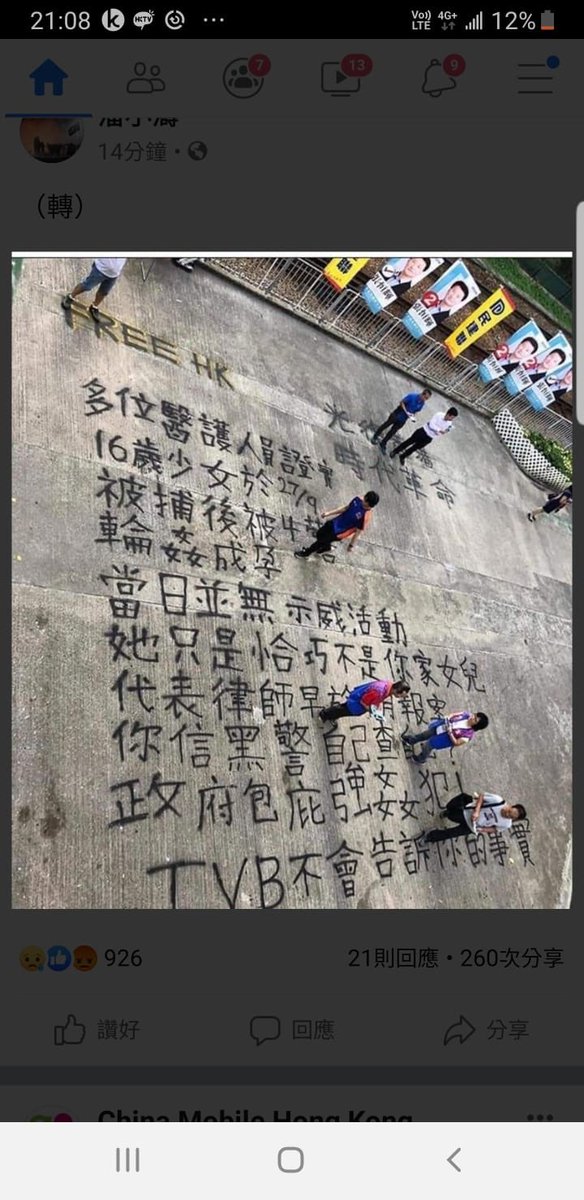 21:08
Vo)) LTE 4G+ 12%
7 13 9
14分鐘
（轉）
FREE HK
民建聯
時代革命
多位醫護人員證實
16歲少女於27/9
被捕後被
輪姦成孕
當日並無示威活動
她只是恰巧不是你家女兒
代表律師早 報案
你信黑警自己查
政府包庇強姦犯!
TVB不會告訴你的事實
926
21則回應・260次分享
讚好 回應 分享
China Mobile Hong Kong